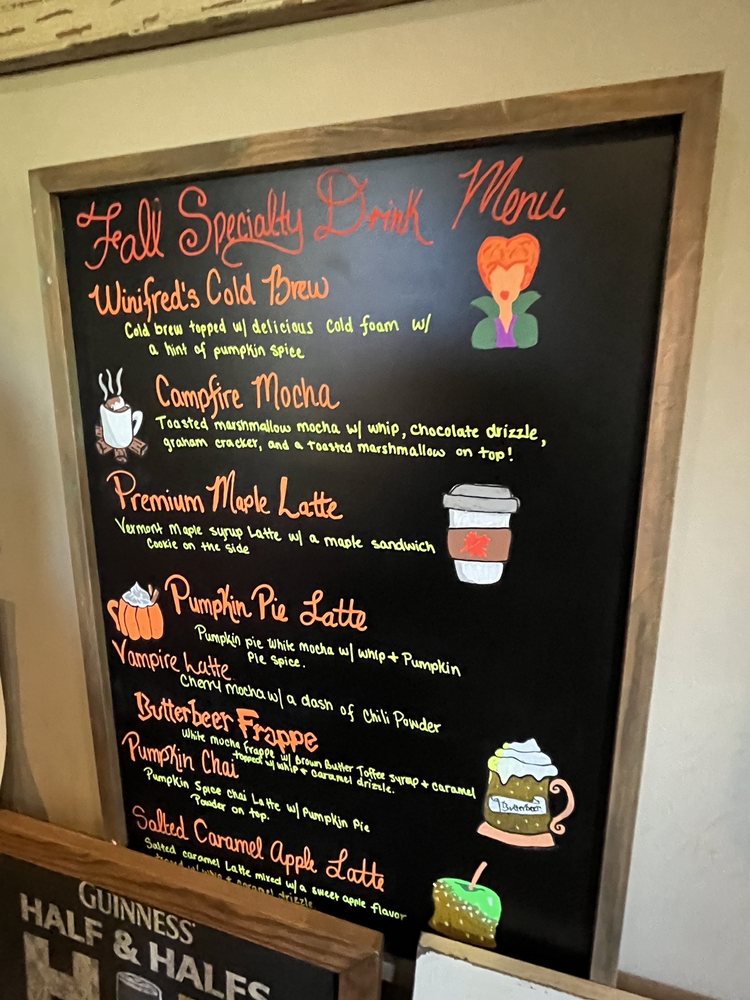 Fall Specialty Drink Menu
Winifred's Cold Brew
Cold brew topped w/ delicious cold foam w/
a hint of pumpkin spice
Campfire Mocha
Toasted marshmallow mocha w/ whip, chocolate drizzle,
graham cracker, and a toasted marshmallow on top!
Premium Maple Latte
Vermont Maple syrup Latte w/ a maple sandwich
Cookie on the side
Pumpkin Pie Latte
Pumpkin pie white mocha w/ whip + Pumpkin
Pie spice.
Vampire Latte
Cherry mocha w/ a dash of Chili Powder
Butterbeer Frappe
White mocha frappe w/ Brown Butter Toffee syrup + caramel
topped w/ whip & caramel drizzle.
Butterbeer
Pumpkin Chai
Pumpkin Spice chai Latte w/ Pumpkin Pie
Powder on top.
Salted Caramel Apple Latte
Salted caramel Latte mixed w/ a sweet apple flavor
topped w/ whip & caramel drizzle
GUINNESS
HALF & HALFS